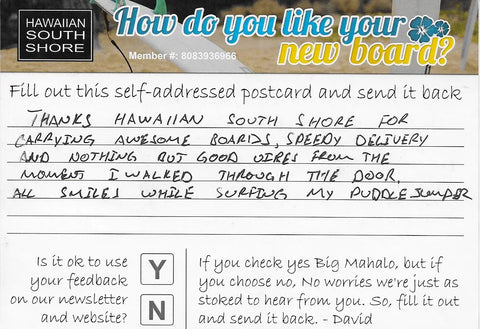 HAWAIIAN
SOUTH
SHORE
How do you like your
new board?
Member #: 8083936966
Fill out this self-addressed postcard and send it back
THANKS HAWAIIAN SOUTH SHORE FOR
CARRYING AWESOME BOARDS, SPEEDY DELIVERY
AND NOTHING BUT GOOD VIBES FROM THE
MOMENT I WALKED THROUGH THE DOOR.
ALL SMILES WHILE SURFING MY PUDDLE JUMPER
Is it ok to use
your feedback
on our newsletter
and website?
Y
N
If you check yes Big Mahalo, but if
you choose no, No worries we're just as
stoked to hear from you. So, fill it out
and send it back. - David